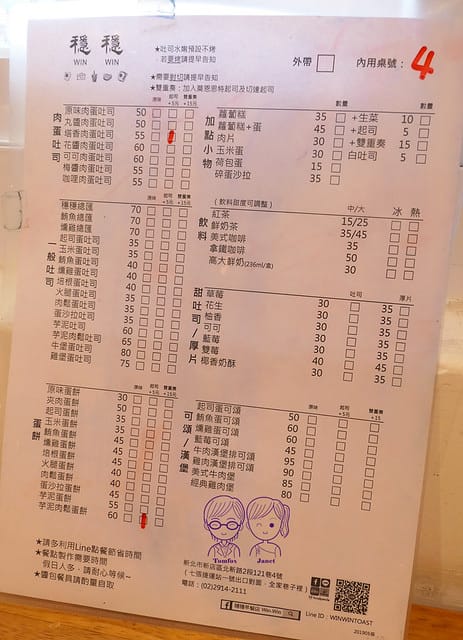 穩 穩
WIN WIN
★吐司水嫩預設不烤
若要烤請提早告知
★需要對切請提早告知
★雙重奏：加入莫恩恩特起司及切達起司
外帶 內用桌號： 4
肉蛋吐司 原味 起司+5元 雙重奏+15元
原味肉蛋吐司 50
丸醬肉蛋吐司 50
塔香肉蛋吐司 55
花醬肉蛋吐司 60
可可肉蛋吐司 60
梅醬肉蛋吐司 55
咖哩肉蛋吐司 55
加點小物 數量 數量
蘿蔔糕 35 +生菜 10
蘿蔔糕+蛋 45 +起司 5
肉片 30 +雙重奏 15
玉米蛋 30 白吐司 5
荷包蛋 15
碎蛋沙拉 35
一般吐司 原味 起司+5元 雙重奏+15元
穩穩總匯 70
鮪魚總匯 70
燻雞總匯 70
起司蛋吐司 35
玉米蛋吐司 35
鮪魚蛋吐司 40
燻雞蛋吐司 40
培根蛋吐司 40
火腿蛋吐司 35
肉鬆蛋吐司 35
蛋沙拉吐司 35
芋泥吐司 60
芋泥肉鬆吐司 65
牛堡蛋吐司 80
雞堡蛋吐司 75
飲料 （飲料甜度可調整） 中/大 冰 熱
紅茶 15/25
鮮奶茶 35/45
美式咖啡 35
拿鐵咖啡 50
高大鮮奶(236ml/盒) 30
甜吐司/厚片 吐司 厚片
草莓 30 35
花生 30 35
柚香 30 35
可可 30 35
藍莓 30 35
雙莓 40 45
椰香奶酥 30 35
蛋餅 原味 起司+5元 雙重奏+15元
原味蛋餅 30
夾肉蛋餅 50
起司蛋餅 35
玉米蛋餅 35
鮪魚蛋餅 45
燻雞蛋餅 45
培根蛋餅 45
火腿蛋餅 40
肉鬆蛋餅 40
蛋沙拉蛋餅 45
芋泥蛋餅 55
芋泥肉蛋餅 60
可頌/漢堡 原味 起司+5元 雙重奏+15
起司蛋可頌 50
鮪魚蛋可頌 60
燻雞蛋可頌 60
藍莓可頌 45
牛肉漢堡排可頌 95
雞肉漢堡排可頌 90
美式牛肉堡 85
經典雞肉堡 80
Tomfox Janet
★請多利用Line點餐節省時間
★餐點製作需要時間
假日人多，請耐心等候~
★醬包餐具請酌量自取
新北市新店區北新路2段121巷4號
（七張捷運站一號出口對面，全家巷子裡）
電話：(02)2914-2111
穩穩早餐店 Win.Win
Line ID：WINWINTOAST